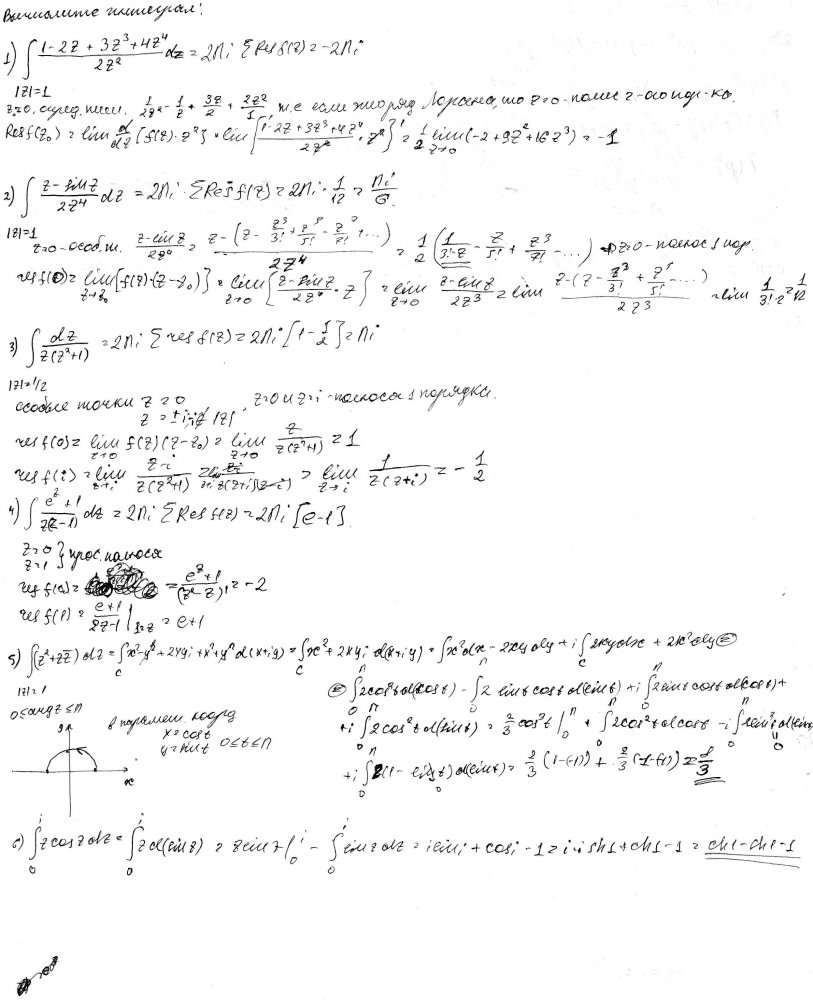 Вычислите интеграл:
1) ∫ (1-2z+3z³+4z⁴)/(2z²) dz = 2πi Σ Res f(z) = -2πi
|z|=1
1/(2z²) - 1/z + 3z/2 + 2z²/1 т.е. если это ряд Лорана, то z=0 - полюс 2-ого пор-ка.
Res f(z₀) = lim d/dz [f(z)·z²] = lim [(1-2z+3z³+4z⁴)/(2z²) · z²]' = 1/2 lim z→0 (-2+9z²+16z³) = -1
2) ∫ (z-sin z)/(2z⁴) dz = 2πi · Σ Res f(z) = 2πi · 1/12 = πi/6.
|z|=1
z=0 - особ. т. (z-sin z)/(2z⁴) = (z-(z-z³/3!+z⁵/5!-z⁷/7!+...))/(2z⁴) = 1/2 (1/(3!·z) - z/5! + z³/7! - ...) → z=0 - полюс 1 пор.
res f(0) = lim z→z₀ [f(z)·(z-z₀)] = lim z→0 [(z-sin z)/(2z⁴) · z] = lim z→0 (z-sin z)/(2z³) = lim (z-(z-z³/3!+z⁵/5!-...))/(2z³) = lim 1/(3!·2) = 1/12
3) ∫ dz/(z(z²+1)) = 2πi Σ res f(z) = 2πi [1-1/2] = πi
|z|=1/2
особые точки z=0 , z=0 и z=i - полюса 1 порядка.
z=±i
res f(0) = lim z→0 f(z)(z-z₀) = lim z→0 z/(z(z²+1)) = 1
res f(i) = lim z→i (z-i)/(z(z²+1)) = lim z→i 1/(z(z+i)) = -1/2
4) ∫ (e^z+1)/(z(z-1)) dz = 2πi Σ Res f(z) = 2πi [e-1].
z=0 } прос. полюса
z=1
res f(0) = (e^z+1)/(z²-z)' = -2
res f(1) = (e+1)/(2z-1) |1=z = e+1
5) ∫(z²+zz̄) dz = ∫ x²-y²+2xyi+x²+y² d(x+iy) = ∫ x²+2xyi d(x+iy) = ∫x²dx - 2xydy + i∫ 2xydx + 2x²dy ⊜
|z|=1
0≤argz≤π
⊜ ∫ 2cos²t d(cost) - ∫ 2 sint cost d(sint) + i ∫ 2sint cost d(cost) +
в парамет. коорд
x=cost
y=sint 0≤t≤π
+i ∫ 2cos²t d(sint) = 2/3 cos³t |₀^π + ∫ 2cos²t dcost - i∫ 2sin²t d(sint)
y
x
6) ∫₀^i z cos z dz = ∫₀^i z d(sin z) = z sin z |₀^i - ∫₀^i sin z dz = i sin i + cos i - 1 = i·i sh1 + ch1 - 1 = ch1-sh1-1